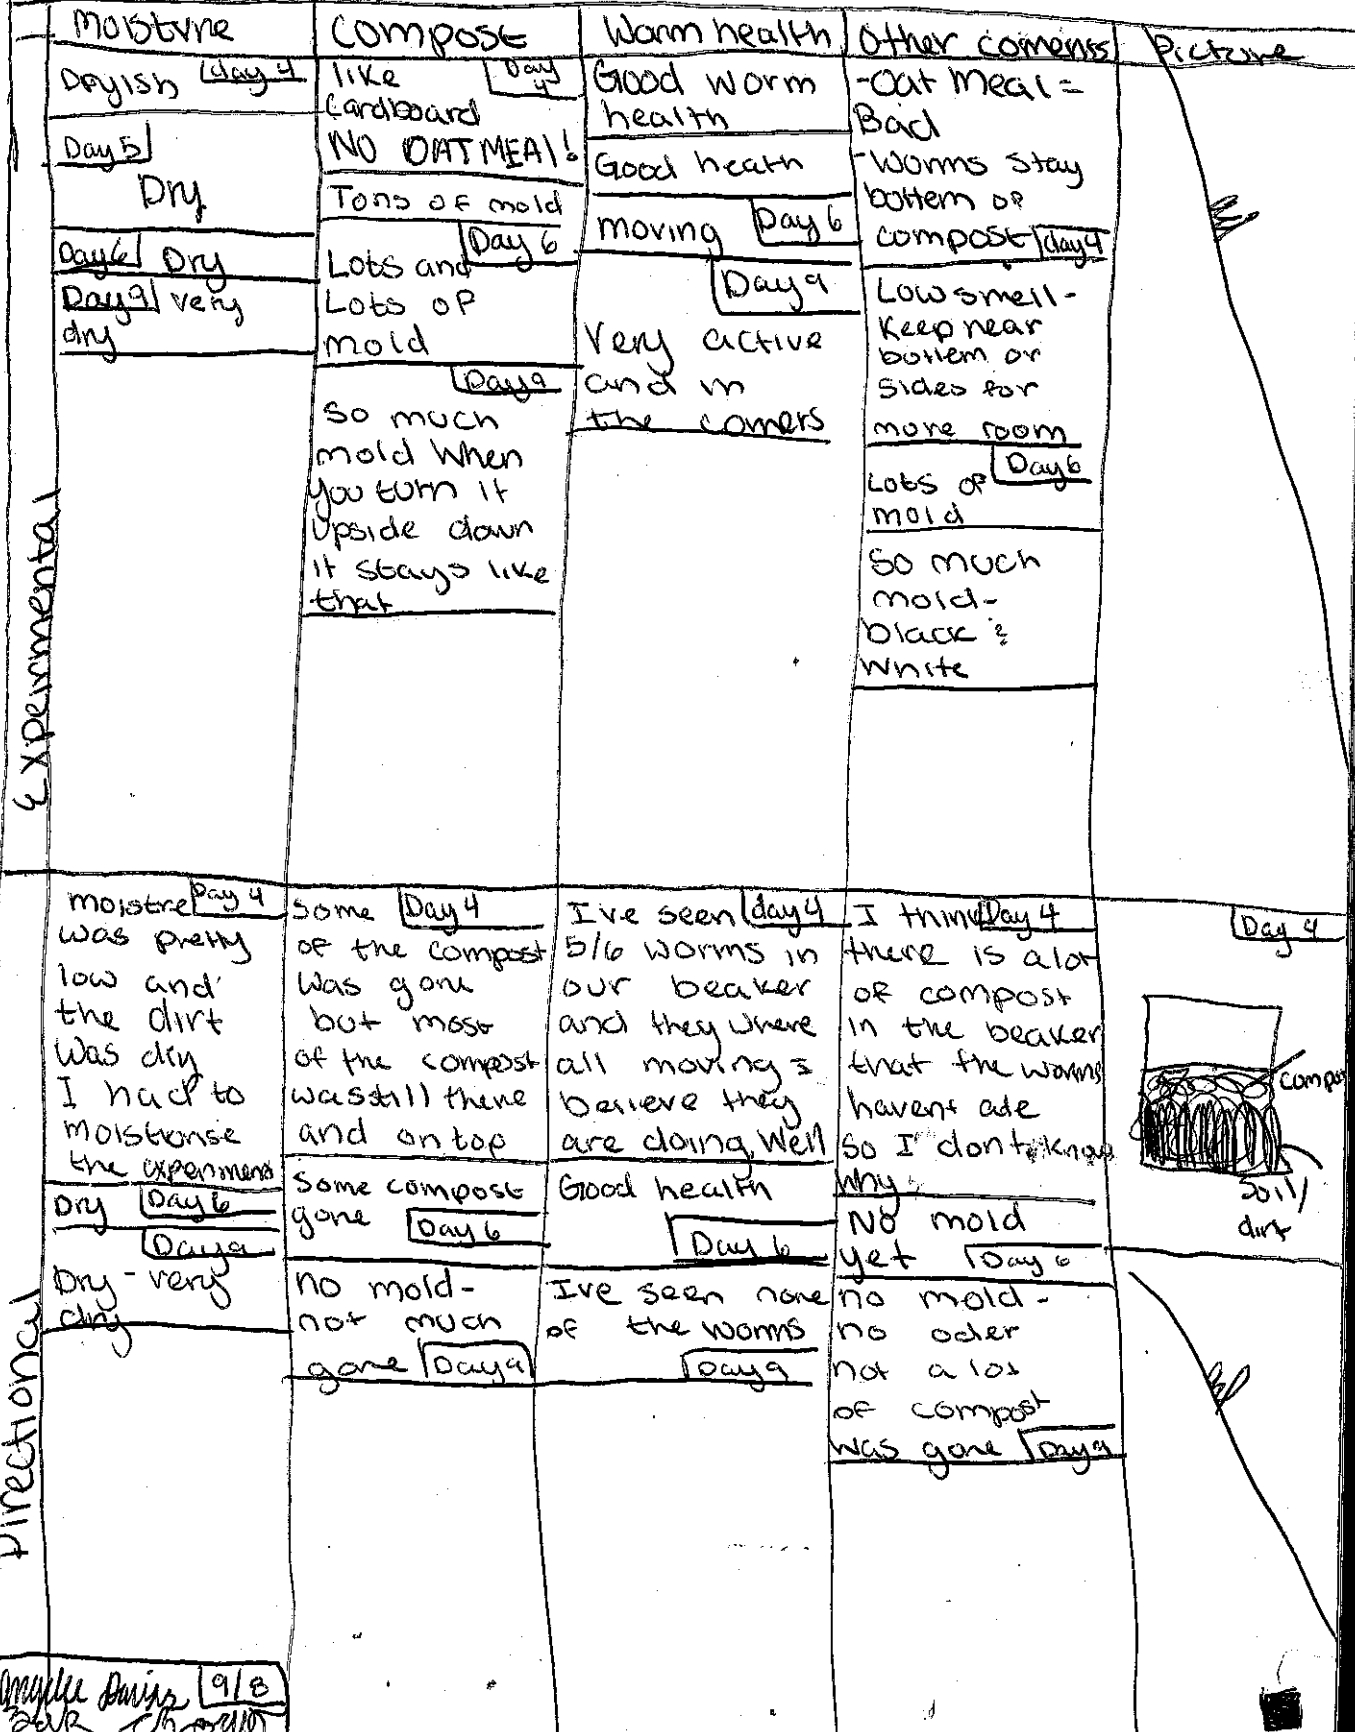 Moistvre
Compost
Worm health
Other coments
Picture
Experimental
Dryish
day 4
Day 5
Dry
Day 6
Dry
Day 9
very
dry
like
Day
4
Cardboard
NO OATMEAL!
Tons of mold
Day 6
Lots and
Lots of
mold
Day 9
So much
mold when
you turn it
upside down
it stays like
that
Good worm
health
Good heath
moving
Day 6
Day 9
Very active
and in
the corners
-Oat Meal =
Bad
-Worms stay
bottem of
compost
day 4
Low smell-
Keep near
bottem or
sides for
more room
Day 6
Lots of
mold
So much
mold-
black &
White
Directional
moistre
Day 4
was pretty
low and
the dirt
was dry
I had to
moistionse
the experiment
Dry
Day 6
Day 9
Dry - very
dry
some
Day 4
of the compost
was gone
but most
of the compost
was still there
and on top
Some compost
gone
Day 6
no mold-
not much
gone
Day 9
I've seen
day 4
5/6 worms in
our beaker
and they where
all moving I
believe they
are doing well
Good health
Day 6
I've seen none
of the worms
Day 9
I think
Day 4
there is alot
of compost
in the beaker
that the worms
havent ate
so I dont know
why
No mold
yet
Day 6
no mold-
no oder
not a lot
of compost
was gone
Day 9
Day 4
compost
Soil/
dirt
9/8